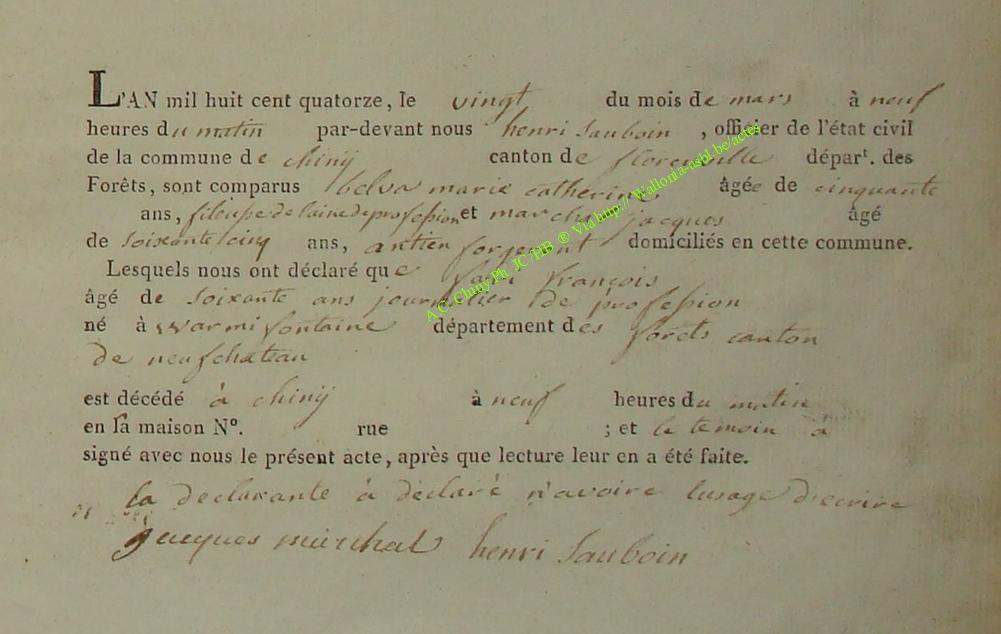 L'AN mil huit cent quatorze, le vingt du mois de mars à neuf
heures du matin par-devant nous henri Sauboin , officier de l'état civil
de la commune de chinÿ canton de florenville départ. des
Forêts, sont comparus belva marie catherine âgée de cinquante
ans, fileuse de laine de profession et marchal jacques âgé
de soixante cinq ans, antien forgeront domiciliés en cette commune.
Lesquels nous ont déclaré que françois
âgé de soixante ans journalier de profession
né à warmifontaine département des forêts canton
de neufchateau
est décédé à chinÿ à neuf heures du matin
en la maison N°. rue ; et le temoin a
signé avec nous le présent acte, après que lecture leur en a été faite.
la declarante à déclaré n'avoire lusage d'écrire
jacques marchal henri Sauboin
A.C. Chiny Ph. JC/HB ® Via http://Wallonia-asbl.be/actes